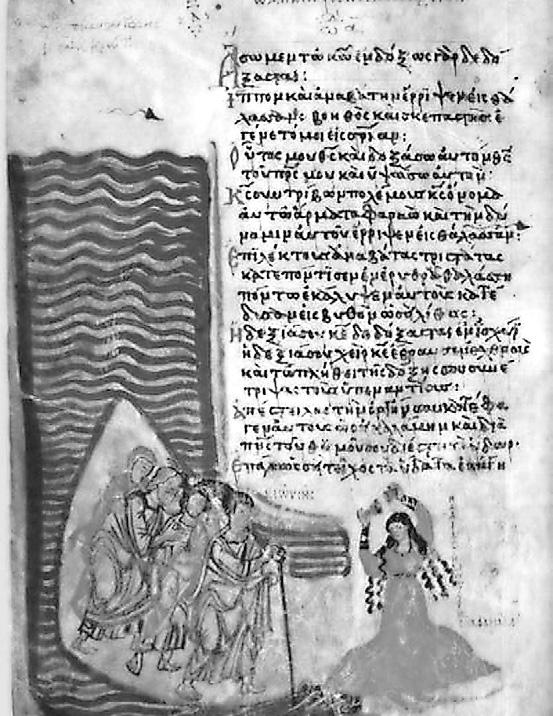 Ἄσωμεν τῶ κῶ ἐνδόξως γὰρ δεδό
ξασται:
Ἵππον καὶ ἀναβάτην ἔρριψεν εἰς θά
λασσαν: βοηθὸς καὶ σκεπαστὴς ἐ
γένετό μοι εἰς σρίαν:
Οὗτός μου θς καὶ δοξάσω αὐτὸν θς
τοῦ πρς μου καὶ ὑψώσω αὐτόν:
Κς συντρίβων πολέμους κς ὄνομα
αὐτῶ ἅρματα φαραὼ καὶ τὴν δύ
ναμιν αὐτοῦ ἔρριψεν εἰς θάλασσαν:
Ἐπιλέκτους ἀναβάτας τριστάτας
κατεπόντισεν ἐν ἐρυθρᾶ θαλάσση
πόντω ἐκάλυψεν αὐτοὺς κατέ
δυσαν εἰς βυθὸν ὡσεὶ λίθος:
Ἡ δεξιά σου κε δεδόξασται ἐν ἰσχύϊ
ἡ δεξιά σου χεὶρ κε ἔθραυσεν ἐχθρούς
καὶ τῶ πλήθει τῆς δόξης σου συνέ
τριψας τοὺς ὑπεναντίους:
Ἀπέστειλας τὴν ὀργήν σου κατέφα
γεν αὐτοὺς ὡς καλάμην καὶ διὰ
πνς τοῦ θυμοῦ σου διέστη τὸ ὕδωρ·
ὡσεὶ τεῖχος τὰ ὕδατα ἐπάγη